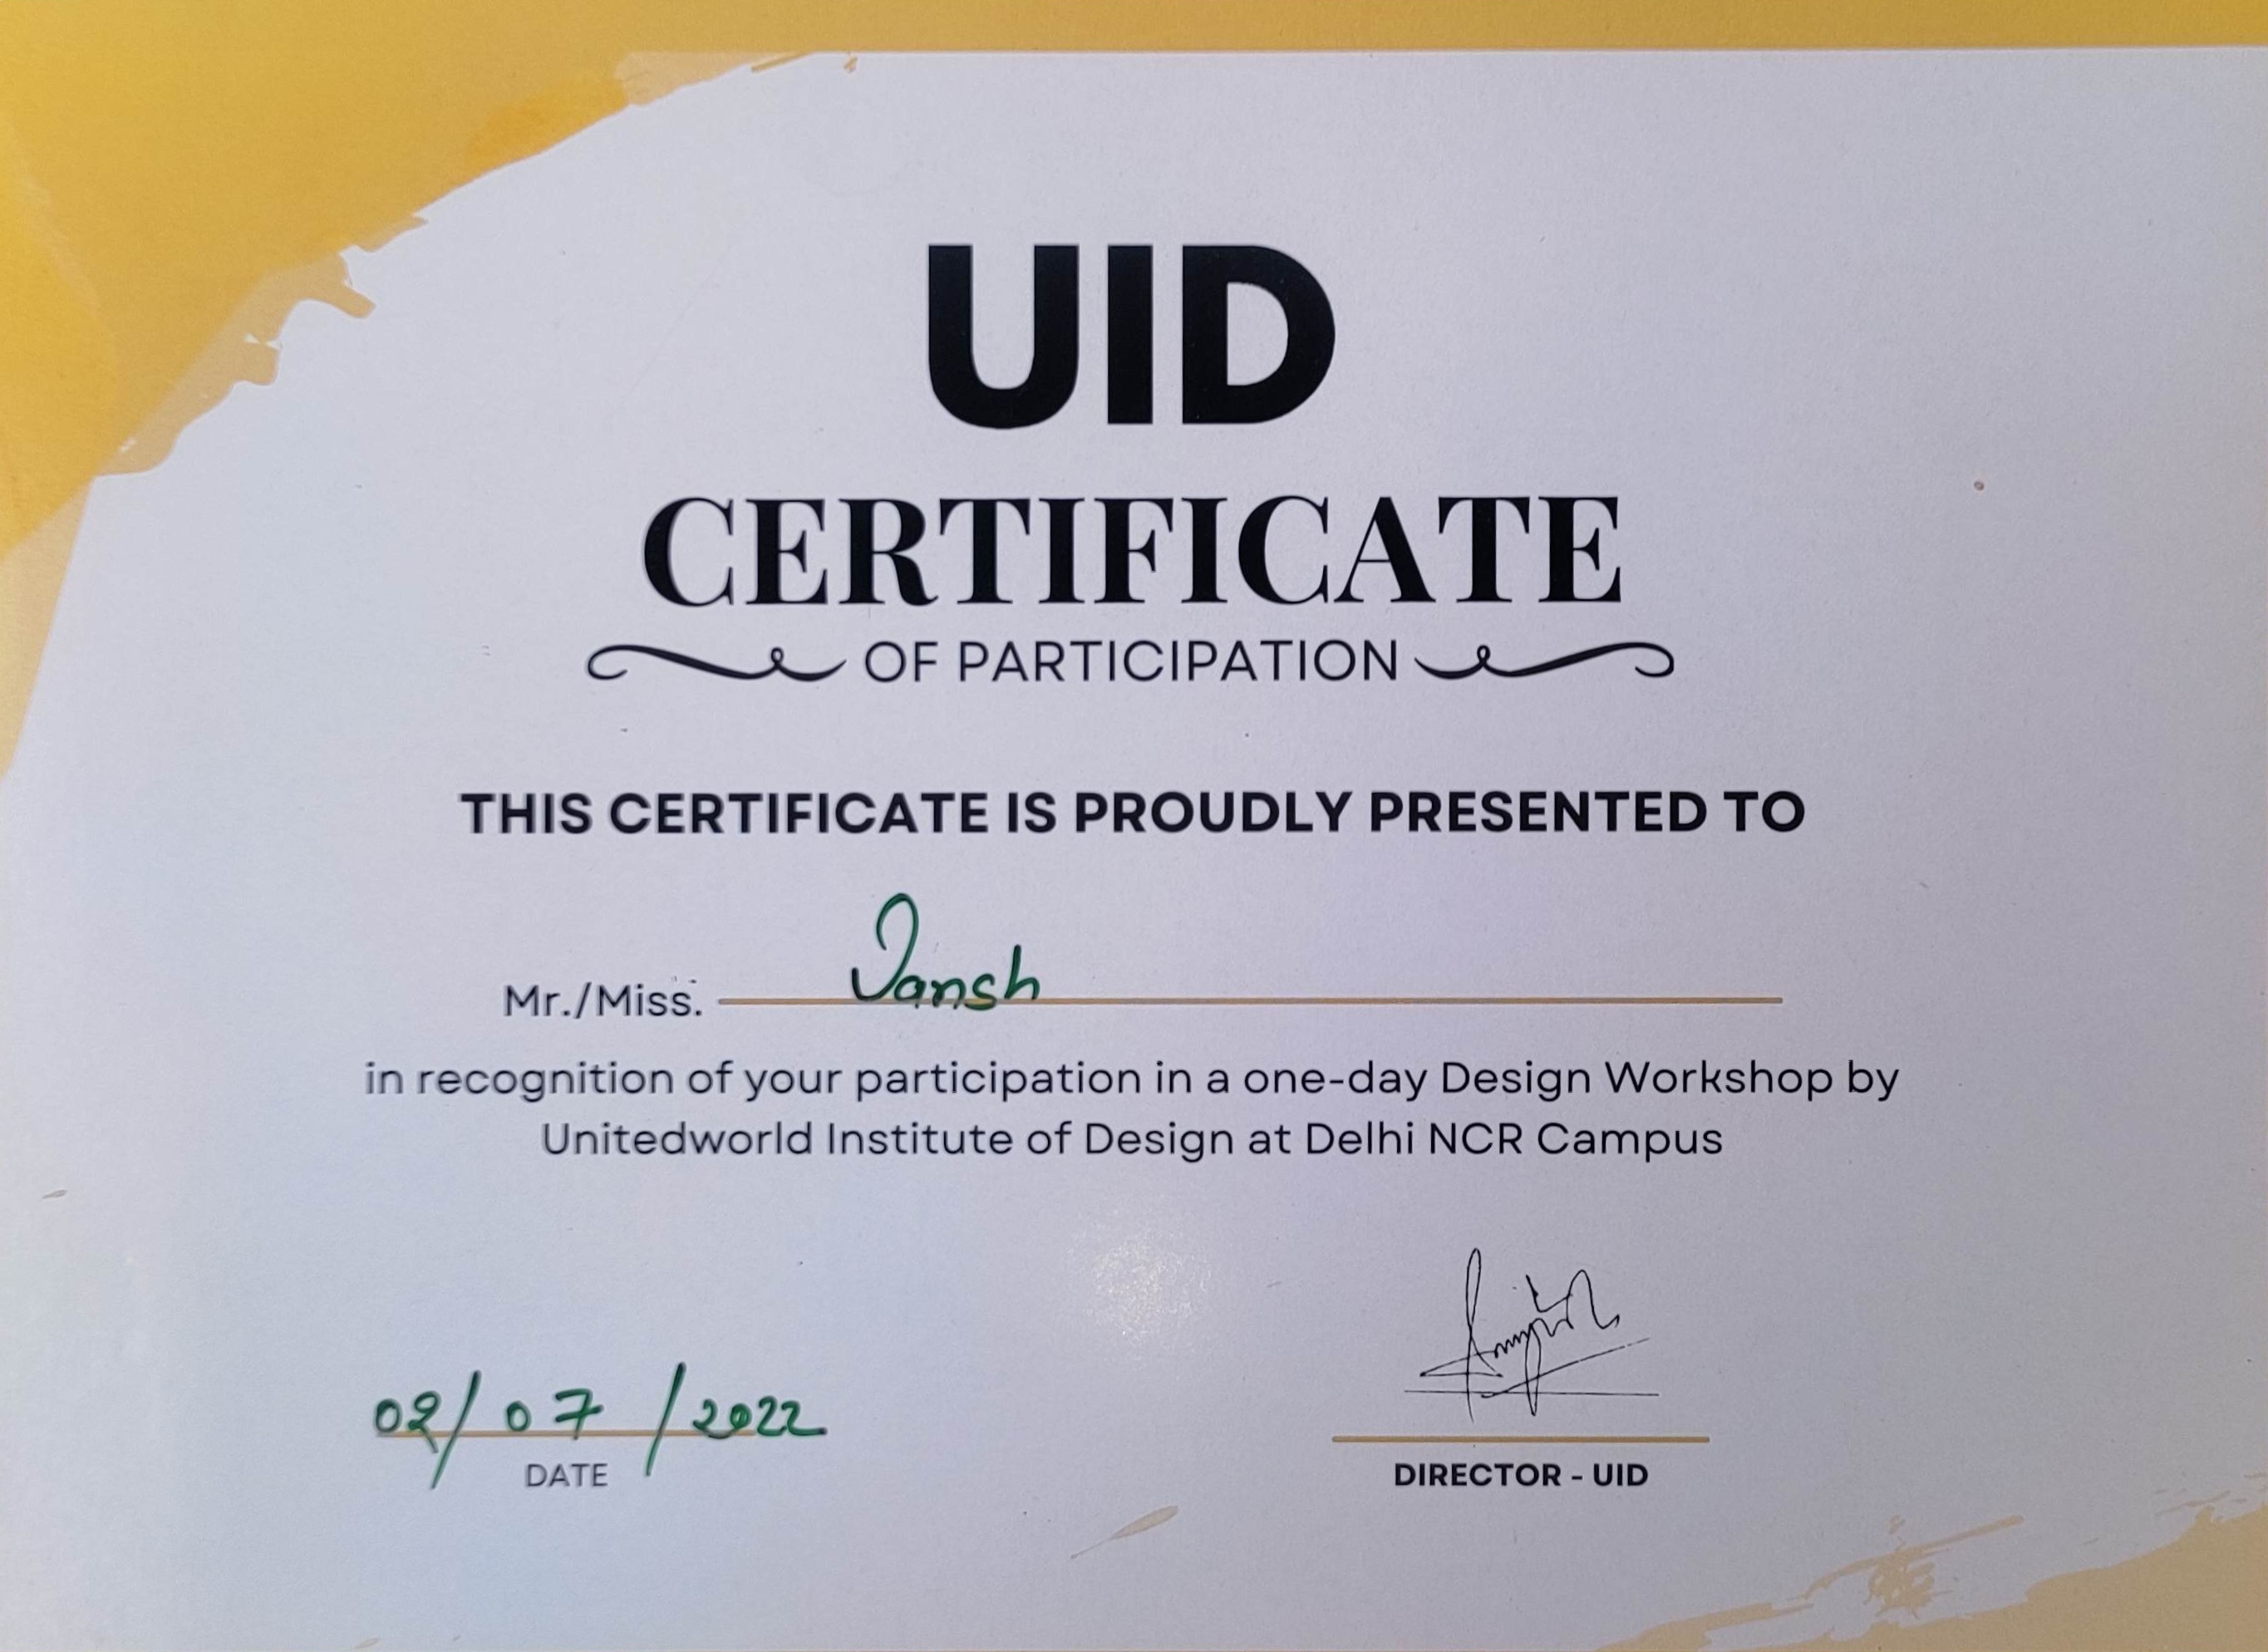 UID
CERTIFICATE
OF PARTICIPATION
THIS CERTIFICATE IS PROUDLY PRESENTED TO
Mr./Miss. Vansh
in recognition of your participation in a one-day Design Workshop by
Unitedworld Institute of Design at Delhi NCR Campus
02/07/2022
DATE
DIRECTOR - UID